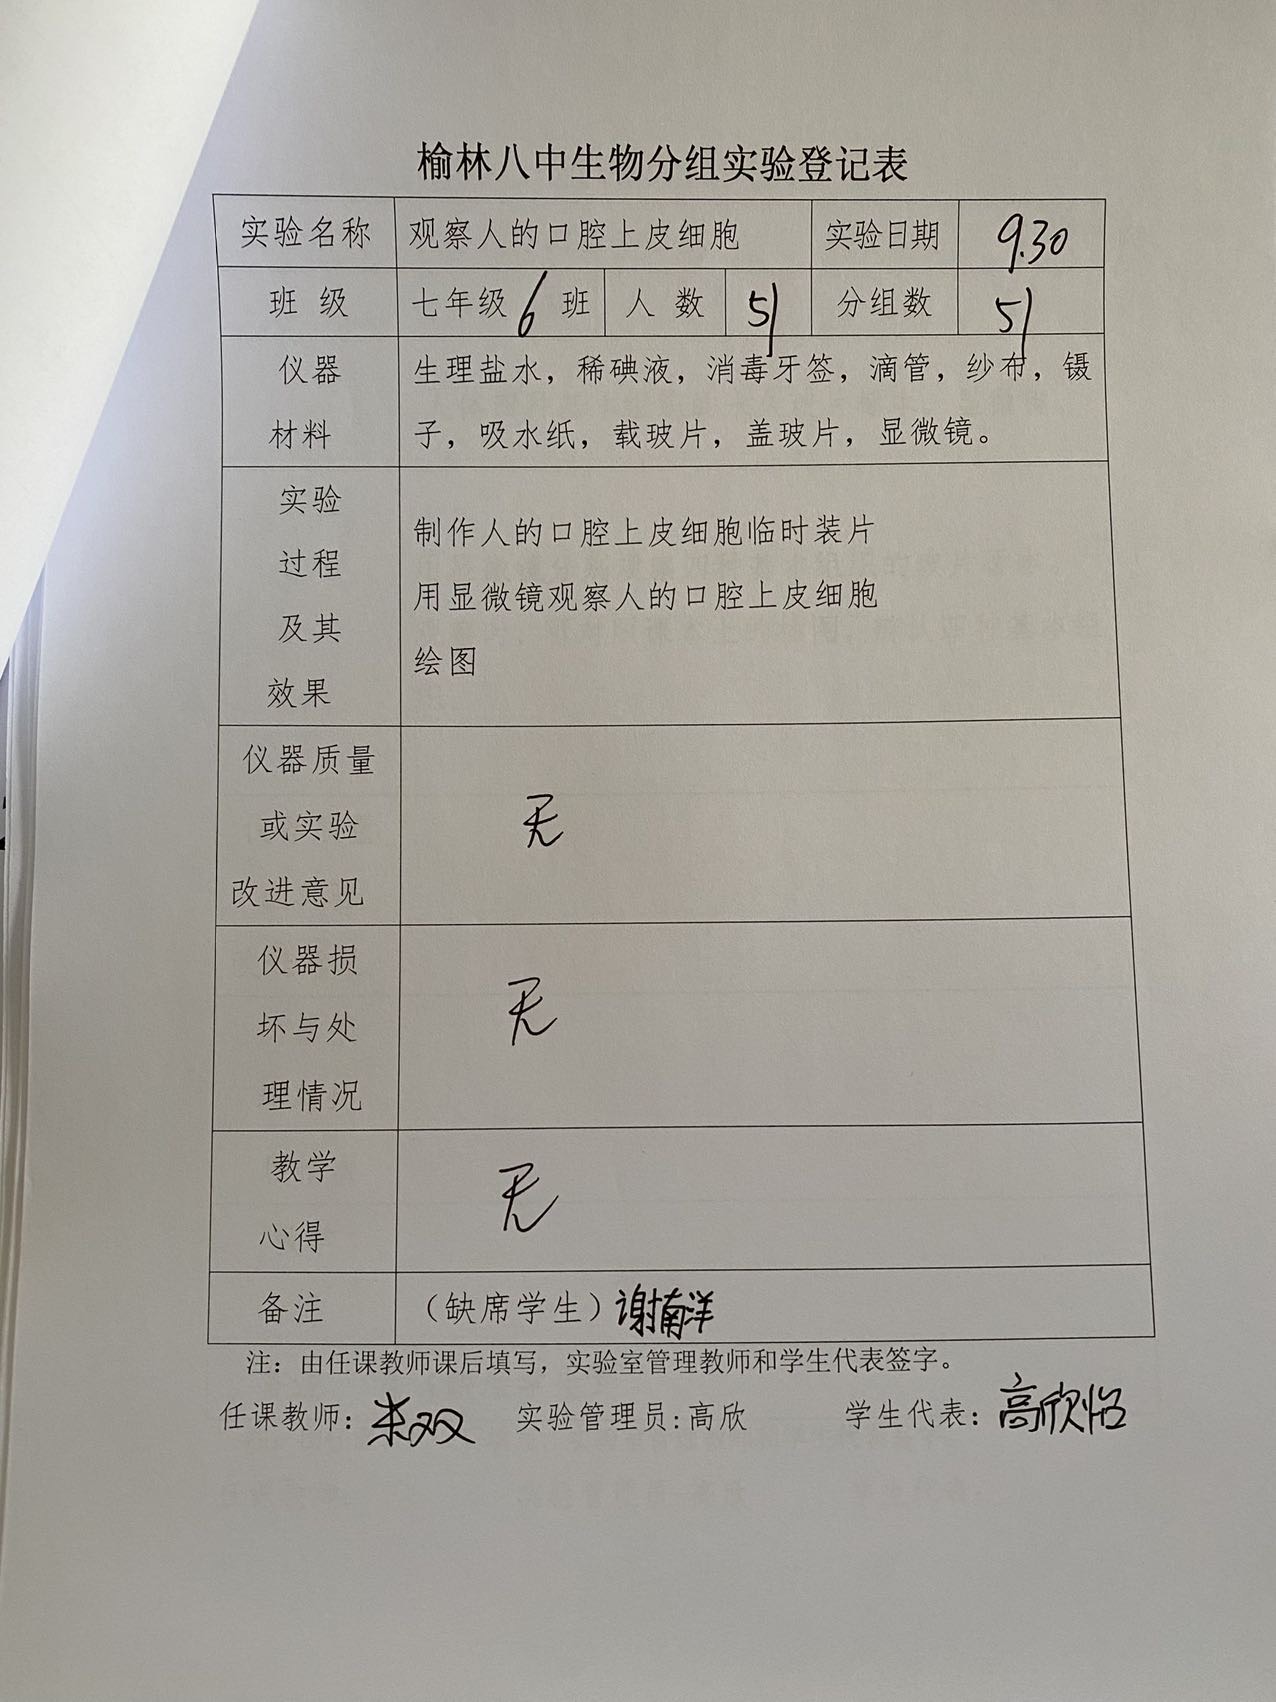 榆林八中生物分组实验登记表
实验名称 观察人的口腔上皮细胞 实验日期 9.30
班 级 七年级 6 班 人 数 51 分组数 51
仪器 生理盐水，稀碘液，消毒牙签，滴管，纱布，镊
材料 子，吸水纸，载玻片，盖玻片，显微镜。
实验
过程
及其
效果
制作人的口腔上皮细胞临时装片
用显微镜观察人的口腔上皮细胞
绘图
仪器质量
或实验
改进意见
无
仪器损
坏与处
理情况
无
教学
心得
无
备注 （缺席学生）谢南洋
注：由任课教师课后填写，实验室管理教师和学生代表签字。
任课教师： 双 实验管理员:高欣 学生代表：高欣怡